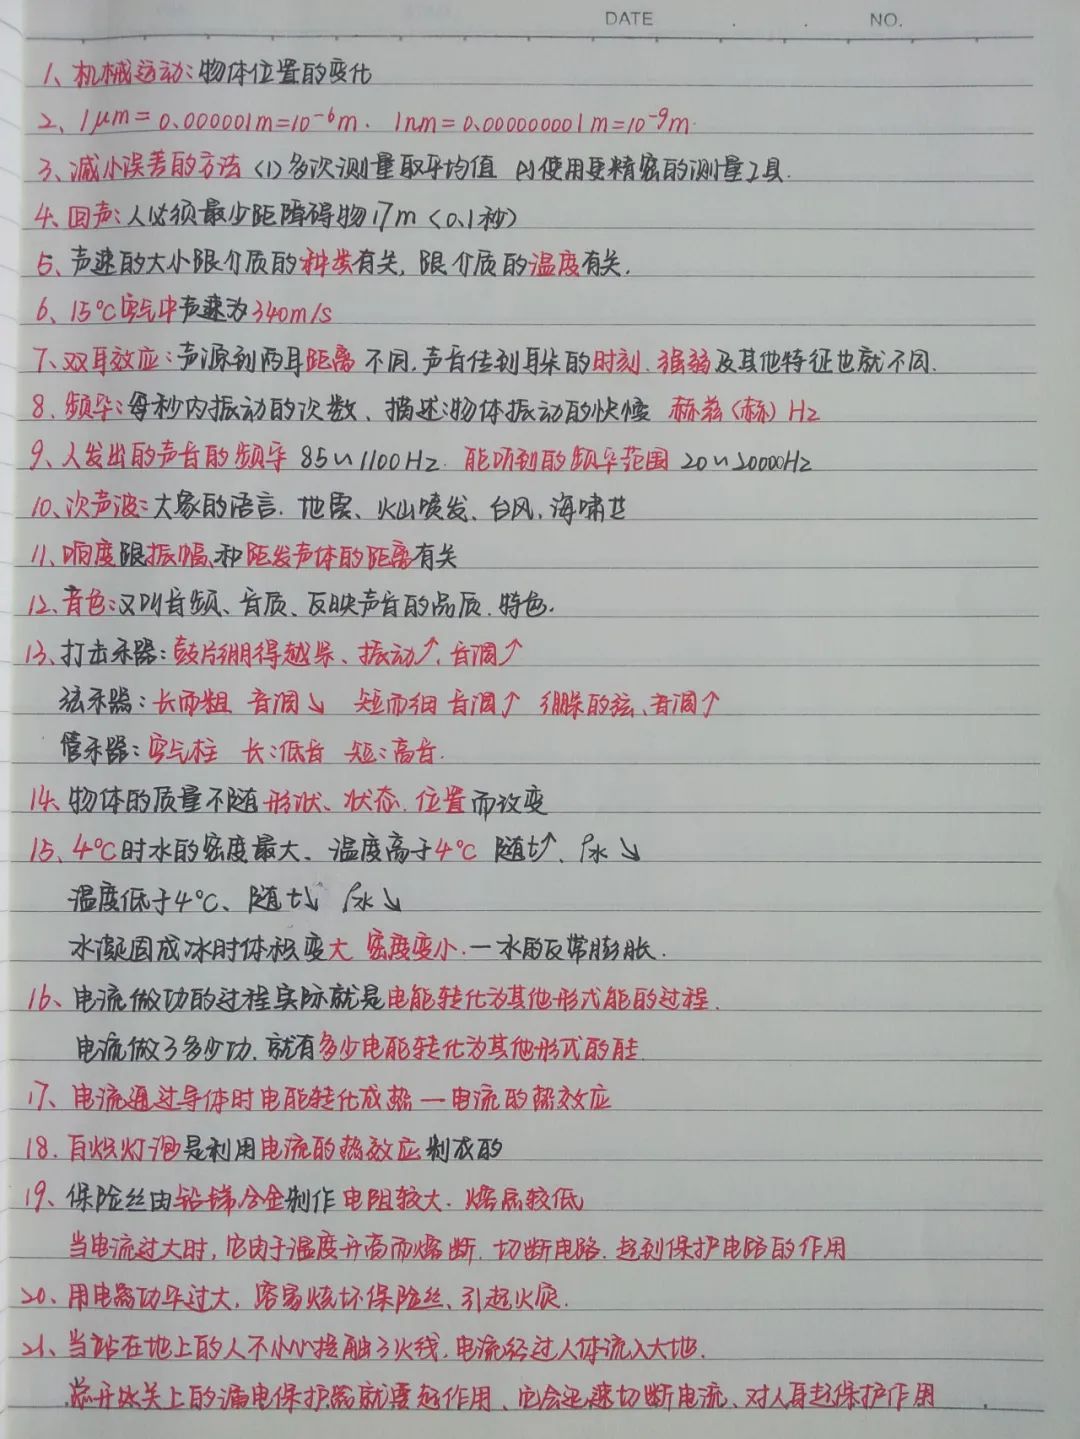 DATE . . NO.
1、机械运动:物体位置的变化
2、1μm=0.000001m=10⁻⁶m. 1nm=0.000000001m=10⁻⁹m.
3、减小误差的方法 (1)多次测量取平均值 (2)使用更精密的测量工具.
4、回声:人必须最少距障碍物17m (0.1秒)
5、声速的大小跟介质的种类有关, 跟介质的温度有关.
6、15℃空气中声速为340m/s
7、双耳效应:声源到两耳距离不同,声音传到耳朵的时刻、强弱及其他特征也就不同.
8、频率:每秒内振动的次数、描述物体振动的快慢 赫兹(赫) Hz
9、人发出的声音的频率 85~1100Hz. 能听到的频率范围 20~20000Hz
10、次声波:大象的语言. 地震、火山喷发、台风、海啸等
11、响度跟振幅、和距发声体的距离有关
12、音色:又叫音频、音质、反映声音的品质、特色.
13、打击乐器:鼓皮绷得越紧、振动↑、音调↑
弦乐器:长而粗 音调↓ 短而细 音调↑ 绷紧的弦、音调↑
管乐器:空气柱 长:低音 短:高音.
14、物体的质量不随形状、状态、位置而改变
15、4℃时水的密度最大、温度高于4℃ 随t↑、ρ水↘
温度低于4℃、随t↓ ρ水↘
水凝固成冰时体积变大 密度变小.—水的反常膨胀.
16、电流做功的过程实际就是电能转化为其他形式能的过程.
电流做了多少功、就有多少电能转化为其他形式的能
17、电流通过导体时电能转化成热 — 电流的热效应
18、白炽灯泡是利用电流的热效应制成的
19、保险丝由铅锑合金制作 电阻较大. 熔点较低
当电流过大时,它由于温度升高而熔断、切断电路、起到保护电路的作用
20、用电器功率过大, 容易烧坏保险丝、引起火灾.
21、当站在地上的人不小心接触了火线,电流经过人体流入大地.
总开关上的漏电保护器就要起作用、它会迅速切断电流、对人身起保护作用